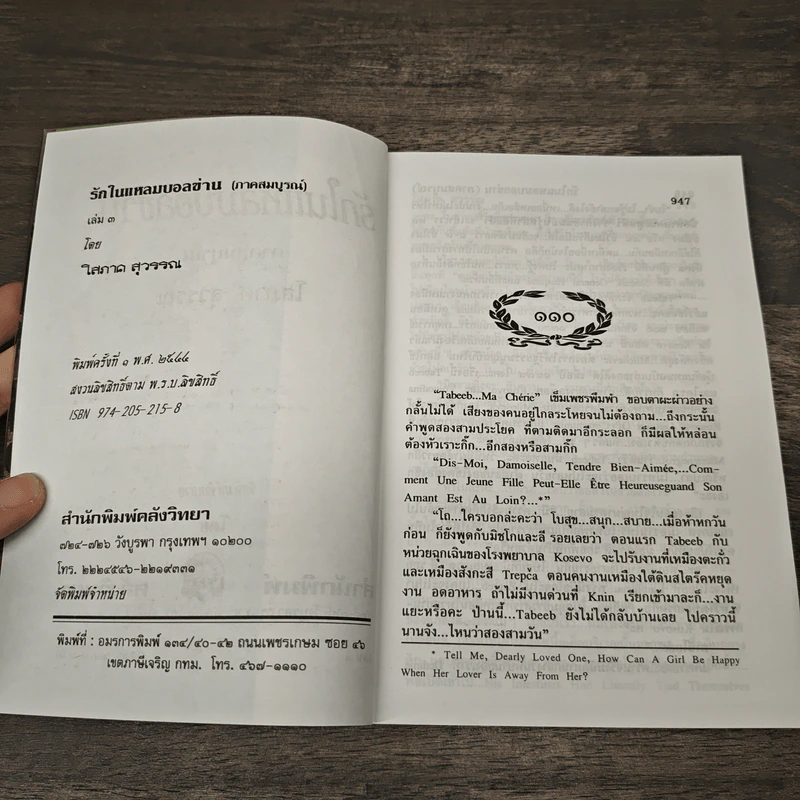 รักในแหลมบอลข่าน (ภาคสมบูรณ์)
เล่ม ๓
โดย
โสภาค สุวรรณ
พิมพ์ครั้งที่ ๑ พ.ศ. ๒๕๔๔
สงวนลิขสิทธิ์ตาม พ.ร.บ.ลิขสิทธิ์
ISBN 974-205-215-8
สำนักพิมพ์คลังวิทยา
๗๒๔-๗๒๖ วังบูรพา กรุงเทพฯ ๑๐๒๐๐
โทร. ๒๒๒๔๕๔๖-๒๒๑๙๓๓๑
จัดพิมพ์จำหน่าย
พิมพ์ที่ : อมรการพิมพ์ ๑๓๔/๔๐-๔๒ ถนนเพชรเกษม ซอย ๔๖
เขตภาษีเจริญ กทม. โทร. ๔๖๗-๑๑๑๐
947
๑๑๐
“Tabeeb...Ma Chérie” เข็มเพชรพึมพำ ขอบตาผะผ่าวอย่าง
กลั้นไม่ได้ เสียงของคนอยู่ไกลระโหยจนไม่ต้องถาม...ถึงกระนั้น
คำพูดสองสามประโยค ที่ตามติดมาอีกระลอก ก็มีผลให้หล่อน
ต้องหัวเราะกิ๊ก...อีกสองหรือสามกิ๊ก
“Dis-Moi, Damoiselle, Tendre Bien-Aimée,...Com-
ment Une Jeune Fille Peut-Elle Être Heureuseguand Son
Amant Est Au Loin?...*”
“โถ...ใครบอกล่ะคะว่า โบสุข...สนุก...สบาย...เมื่อห้าหกวัน
ก่อน ก็ยังพูดกับมิชโกและลี รอยเลยว่า ตอนแรก Tabeeb กับ
หน่วยฉุกเฉินของโรงพยาบาล Kosevo จะไปรับงานที่เหมืองตะกั่ว
และเหมืองสังกะสี Trepča ตอนคนงานเหมืองใต้ดินสไตร๊คหยุด
งาน อดอาหาร ถ้าไม่มีงานด่วนที่ Knin เรียกเข้ามาละก็...งาน
แยะหรือคะ ป่านนี้...Tabeeb ยังไม่ได้กลับบ้านเลย ไปคราวนี้
นานจัง...ไหนว่าสองสามวัน”
* Tell Me, Dearly Loved One, How Can A Girl Be Happy
When Her Lover Is Away From Her?